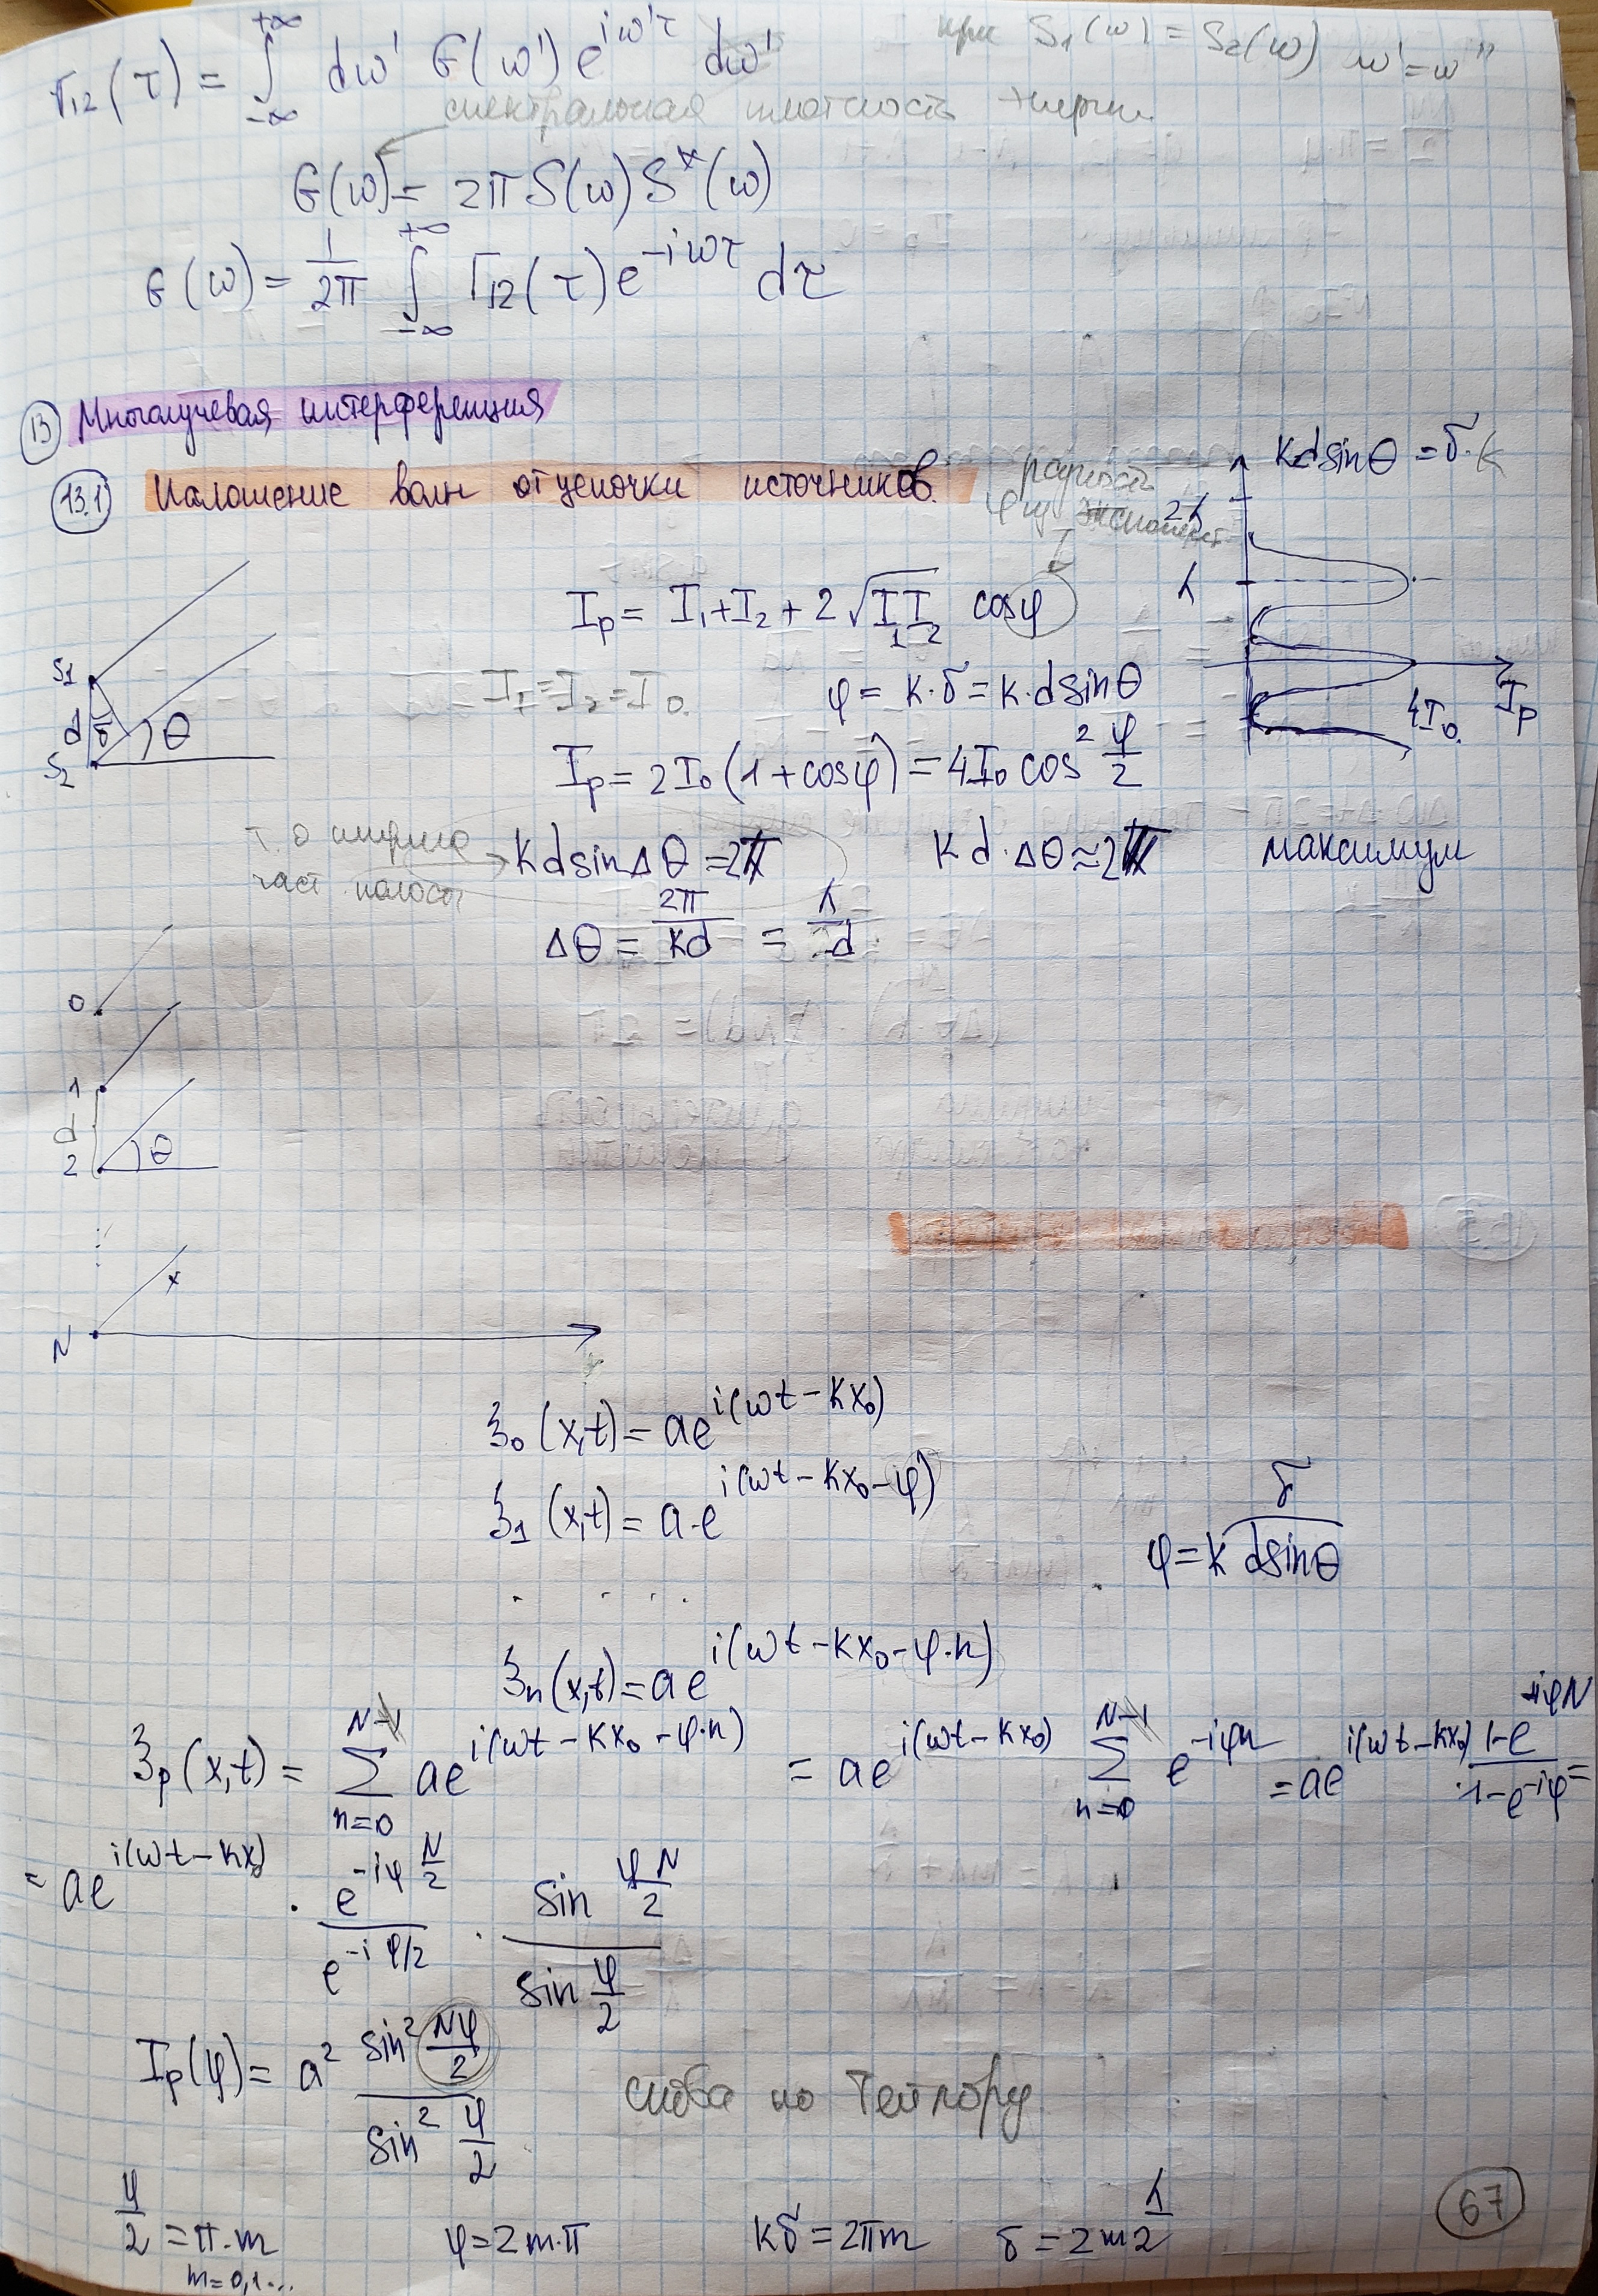 Γ₁₂(τ) = ∫_{-∞}^{+∞} dω' G(ω') e^{iω'τ} dω'
при S₁(ω) = S₂(ω) ω' = ω''
спектральная плотность энергии
G(ω) = 2π S(ω) S*(ω)
G(ω) = 1/2π ∫_{-∞}^{+∞} Γ₁₂(τ) e^{-iωτ} dτ
13 Многолучевая интерференция
13.1 Наложение волн от цепочки источников.
разность
φ из экспонент
kd sinθ = δ·k
2λ
λ
4I₀
I_p
S₁
d δ θ
S₂
I_p = I₁ + I₂ + 2√(I₁I₂) cosφ
I₁ = I₂ = I₀
φ = k·δ = k·d sinθ
I_p = 2I₀(1 + cosφ) = 4I₀ cos² φ/2
ширина
полосы
kd sinΔθ = 2π kd·Δθ ≈ 2π максимум
Δθ = 2π/kd = λ/d
0
1
d
2 θ
x
N
ξ₀(x,t) = ae^{i(ωt - kx₀)}
ξ₁(x,t) = a·e^{i(ωt - kx₀ - φ)}
δ
φ = k d sinθ
. . . . .
ξₙ(x,t) = ae^{i(ωt - kx₀ - φ·n)}
ξ_p(x,t) = Σ_{n=0}^{N-1} ae^{i(ωt - kx₀ - φ·n)} = ae^{i(ωt - kx₀)} Σ_{n=0}^{N-1} e^{-iφn} = ae^{i(ωt - kx₀)} · (1 - e^{-iφN})/(1 - e^{-iφ}) =
= ae^{i(ωt - kx₀)} · e^{-iφ N/2}/e^{-iφ/2} · sin φN/2 / sin φ/2
I_p(φ) = a² sin² Nφ/2 / sin² φ/2
по Тейлору
φ/2 = π·m φ = 2m·π kδ = 2πm δ = 2m λ/2
m = 0,1...
67